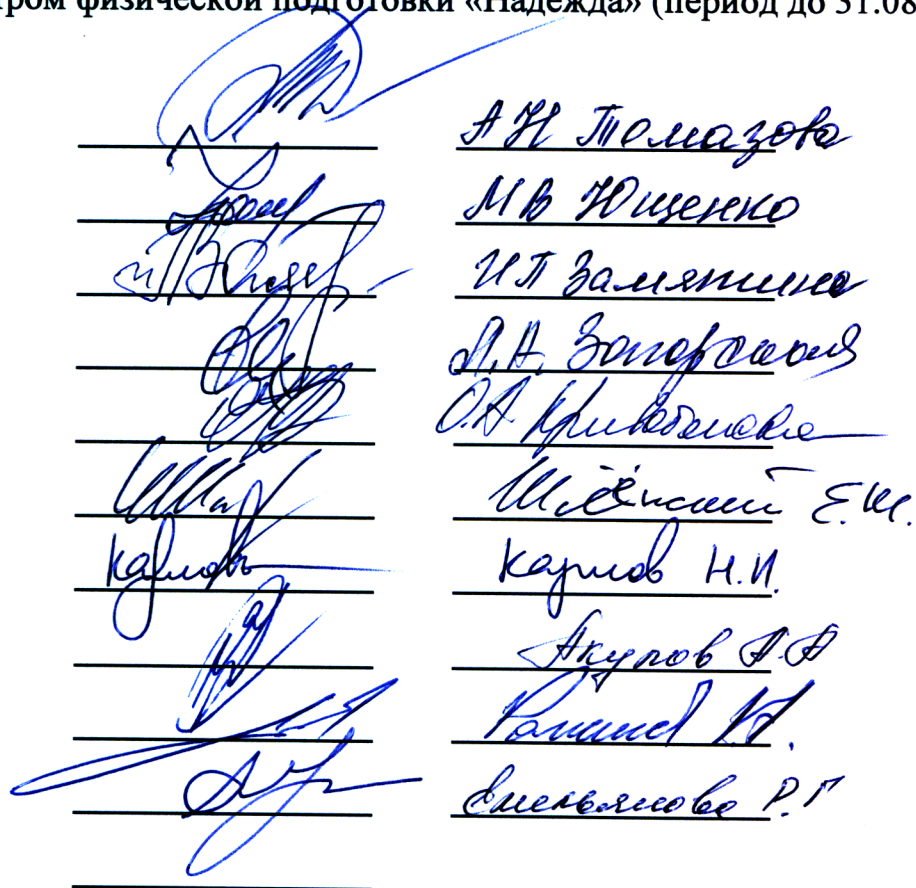 тром физической подготовки «Надежда» (период до 31.08
А Н Томазова
М В Ющенко
И П Замятина
Л.А. Загорская
О.А Кривобокова
Е.Ш.
Карлов Карлов Н.И.
Акулов А.А
Романов
Емельянова Р.Г